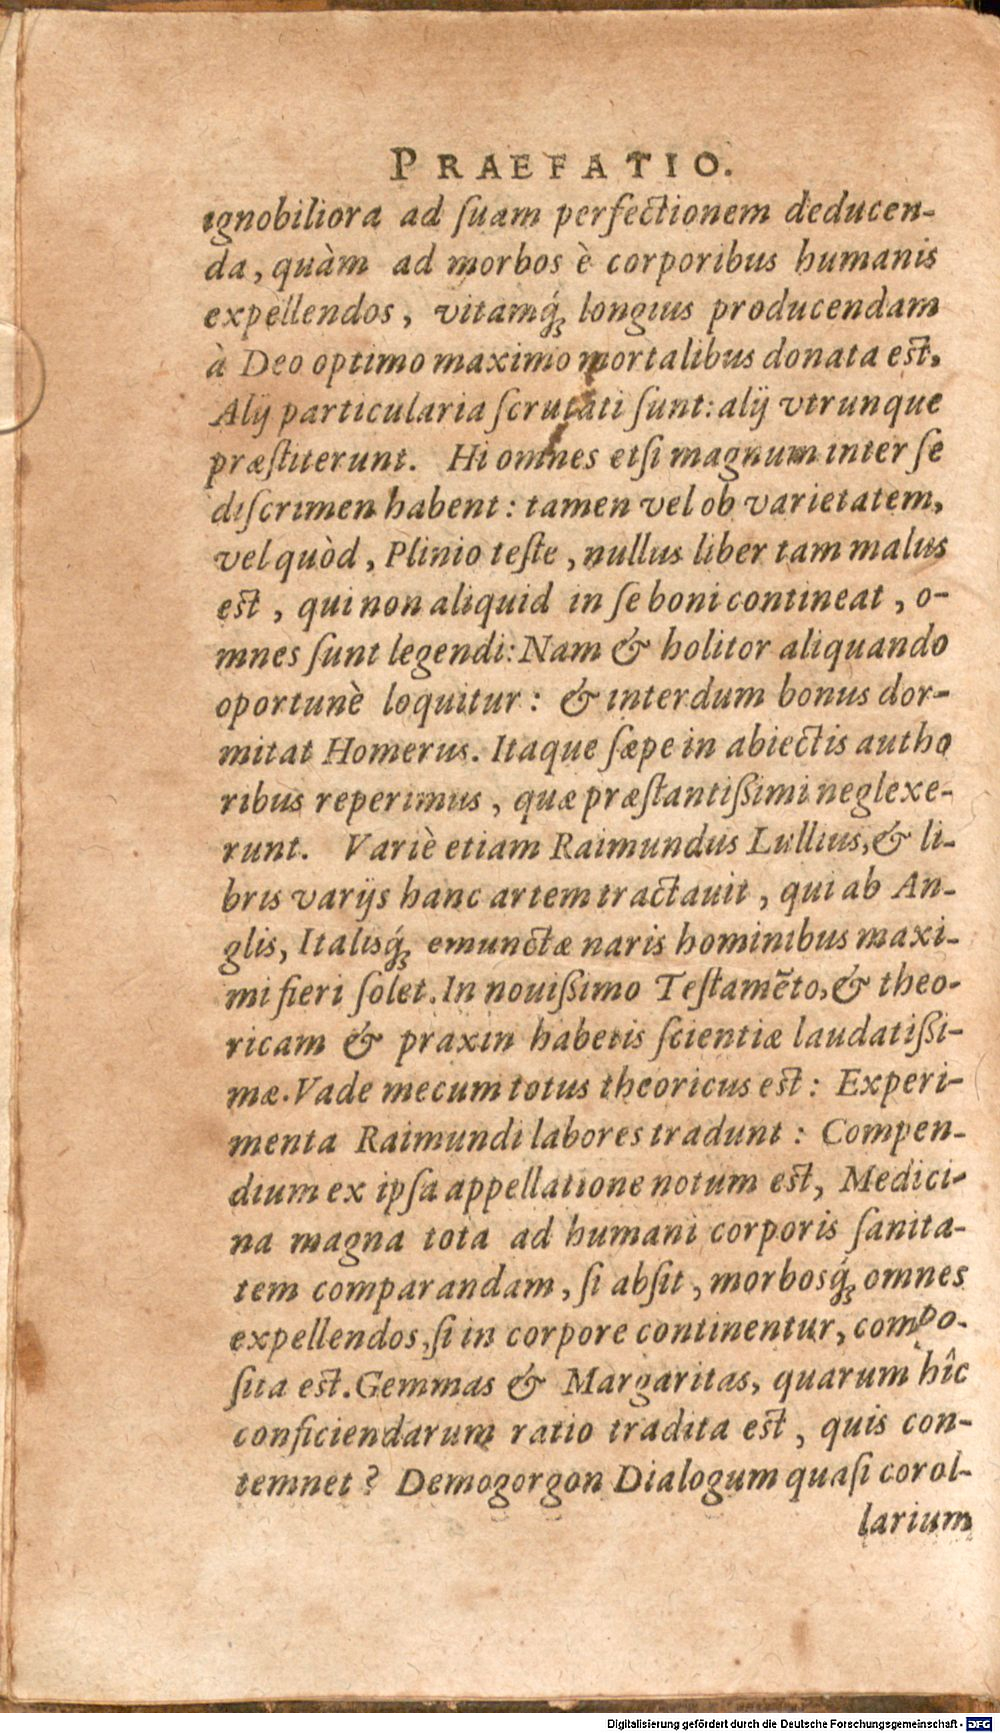 PRAEFATIO.
ignobiliora ad ſuam perfectionem deducen-
da, quàm ad morbos è corporibus humanis
expellendos, vitamq́; longius producendam
à Deo optimo maximo mortalibus donata eſt.
Alij particularia ſcrutati ſunt: alij vtrunque
præſtiterunt. Hi omnes etſi magnum inter ſe
diſcrimen habent: tamen vel ob varietatem,
vel quòd, Plinio teſte, nullus liber tam malus
eſt, qui non aliquid in ſe boni contineat, o-
mnes ſunt legendi: Nam & holitor aliquando
oportunè loquitur: & interdum bonus dor-
mitat Homerus. Itaque ſæpe in abiectis autho
ribus reperimus, quæ præſtantißimi neglexe-
runt. Variè etiam Raimundus Lullius, & li-
bris varijs hanc artem tractauit, qui ab An-
glis, Italisq́; emunctæ naris hominibus maxi-
mi fieri ſolet. In nouißimo Teſtamẽto, & theo-
ricam & praxin habetis ſcientiæ laudatißi-
mæ. Vade mecum totus theoricus est: Experi-
menta Raimundi labores tradunt: Compen-
dium ex ipſa appellatione notum eſt, Medici-
na magna tota ad humani corporis ſanita-
tem comparandam, ſi abſit, morbosq́; omnes
expellendos, ſi in corpore continentur, compo-
ſita eſt. Gemmas & Margaritas, quarum hîc
conficiendarum ratio tradita eſt, quis con-
temnet? Demogorgon Dialogum quaſi corol-
larium
Digitalisierung gefördert durch die Deutsche Forschungsgemeinschaft - DFG